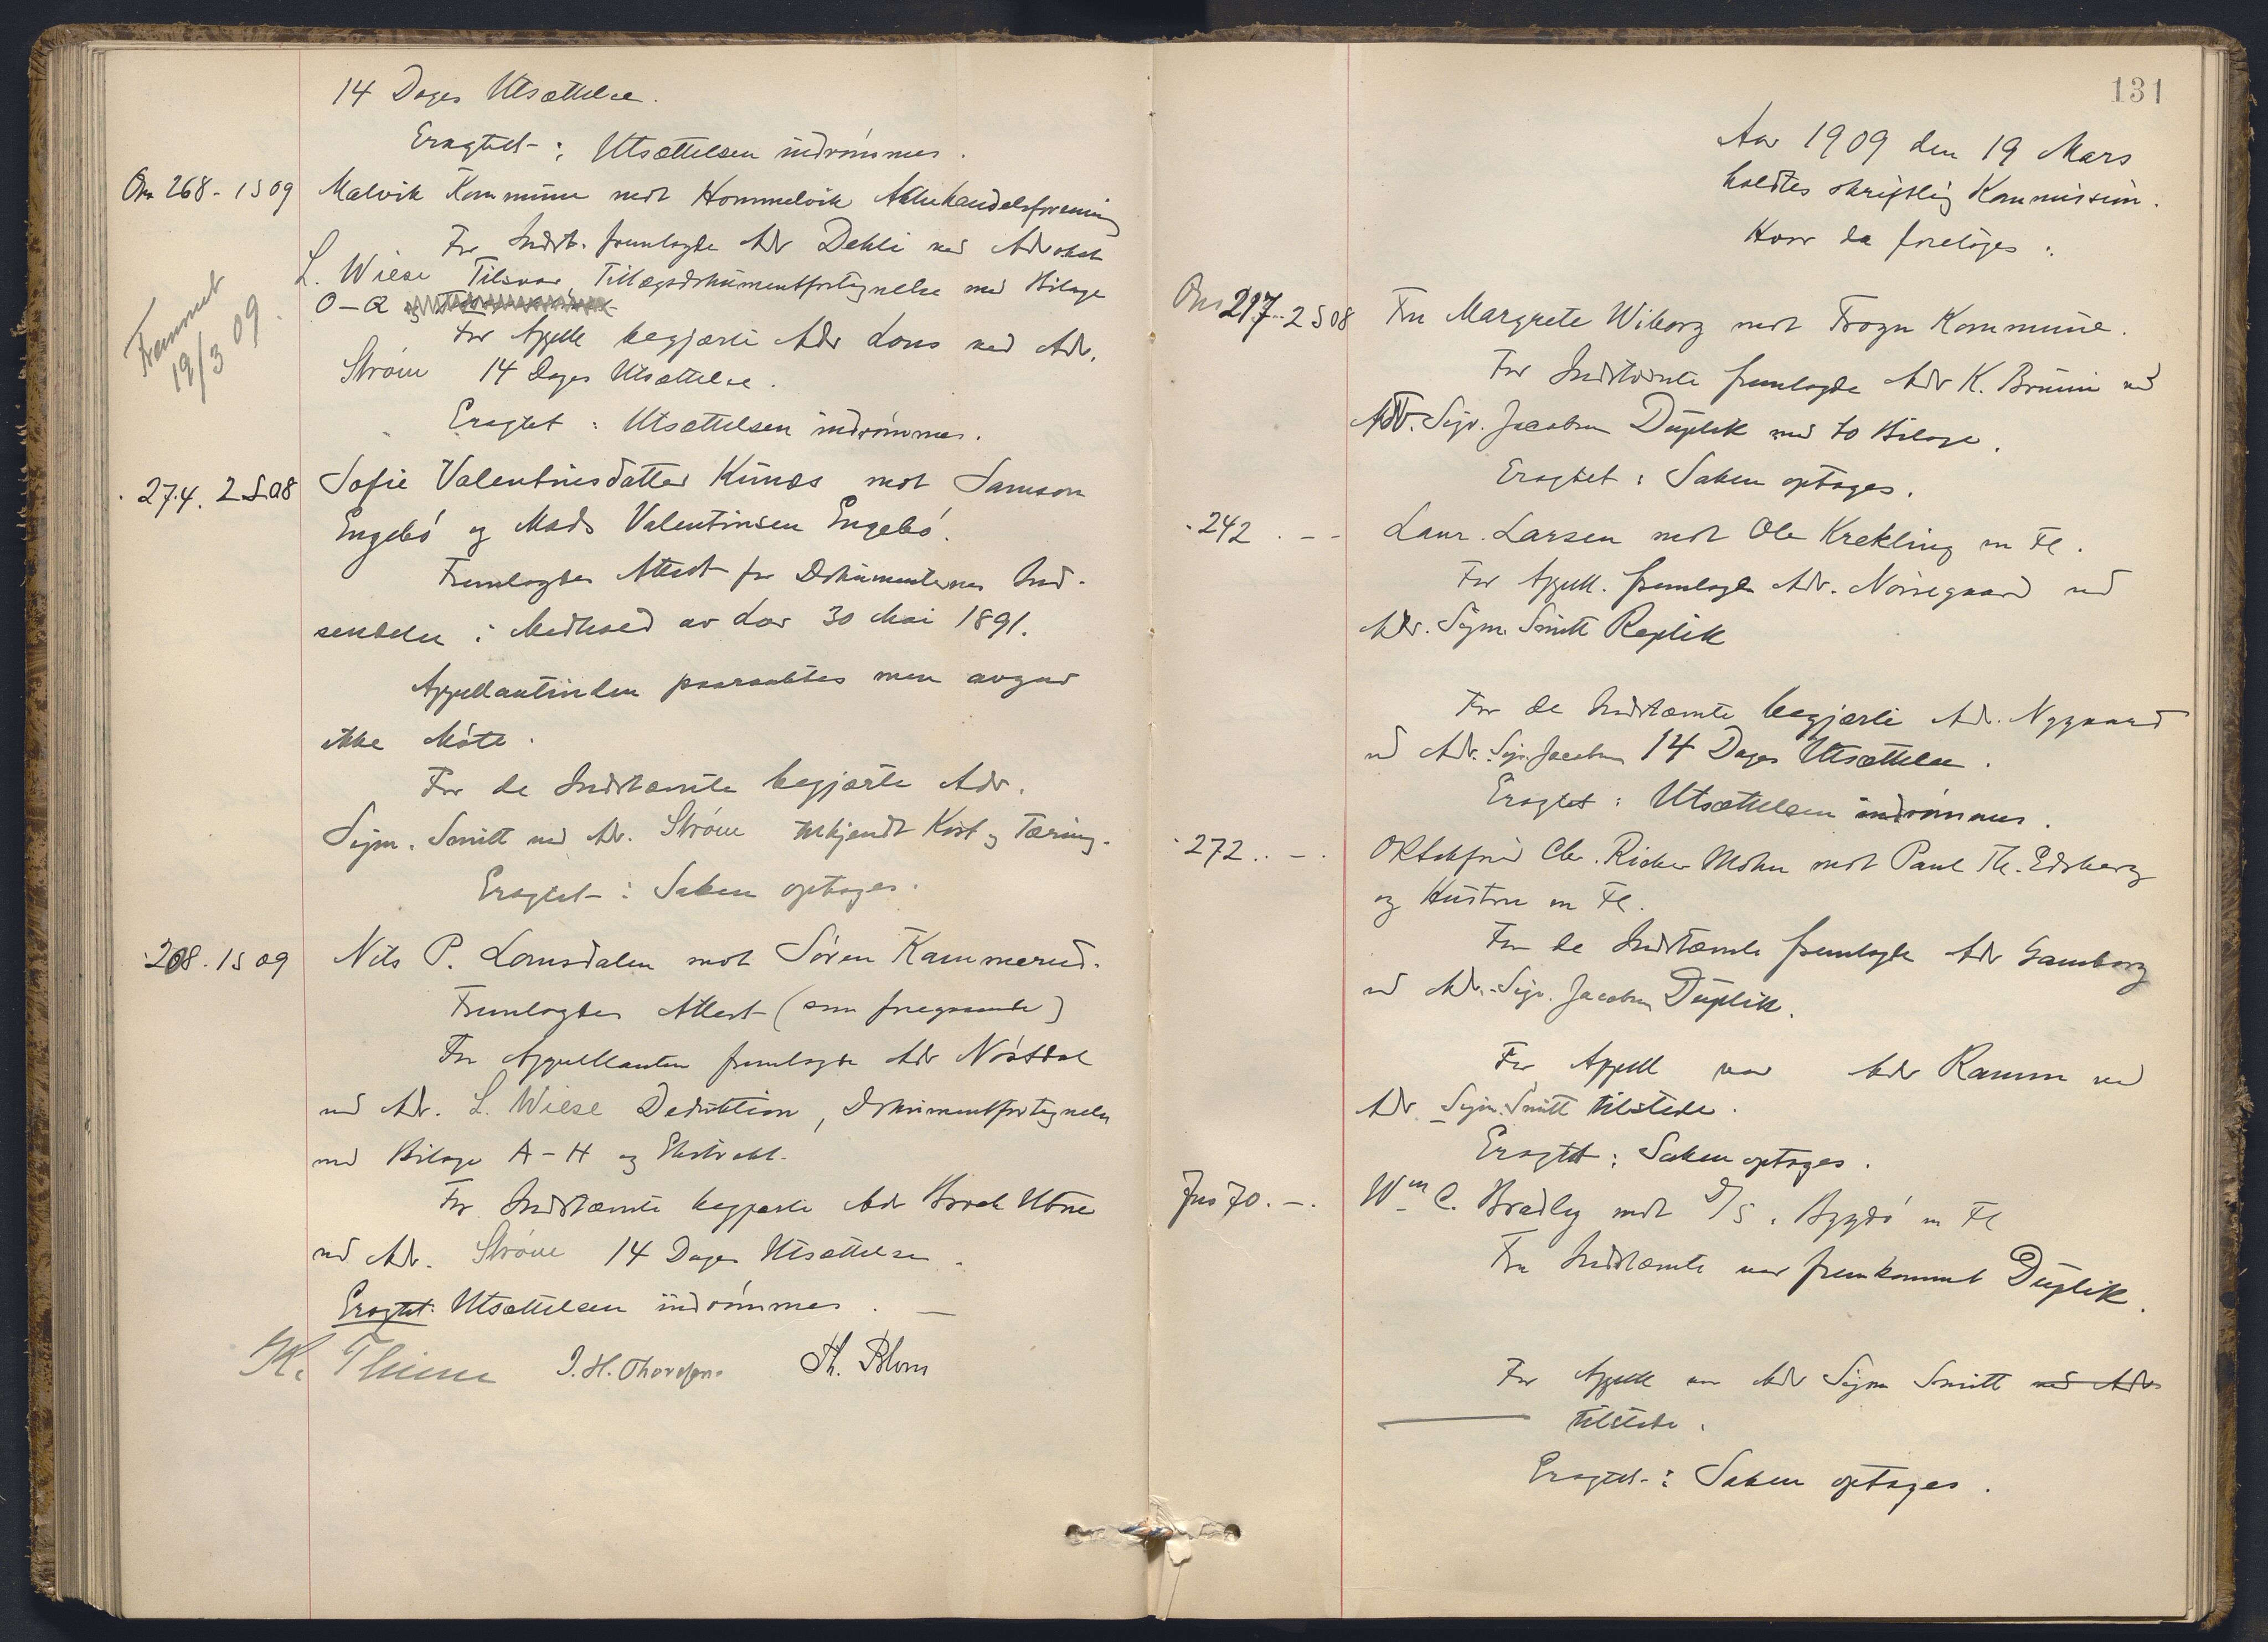 14 Dages Utsættelse.
Eragtet: Utsættelsen indrømmes.
Om 268 - 1 S 09 Malvik Kommune mot Hommelvik Aktiehandelsforening
For Indst. fremlagde Adv Dehli ved Advokat
L. Wiese Tilsvar, Tillægsdokumentfortegnelse med Bilage
O-Q og
Fremmet 19/3 09.
For Appell begjærte Adv Lous ved Adv.
Strøm 14 Dages Utsættelse.
Eragtet: Utsættelsen indrømmes.
" 274. 2 S 08 Sofie Valentinsdatter Kinds mot Samson
Engebø og Mads Valentinsen Engebø.
Fremlagdes Attest for Dokumenternes Ind-
sendelse i Medhold av Lov 30 Mai 1891.
Appellantinden paaraabtes men avgav
ikke Møte.
For de Indstævnte begjærte Adv.
Sigm. Smitt ved Adv. Strøm tilkjendt Kost og Tæring.
Eragtet: Saken optages.
" 208. 1 S 09 Nils P. Lomsdalen mot Søren Kammerud.
Fremlagdes Attest (som foregaaende)
For Appellanten fremlagde Adv Nøstdal
ved Adv. L. Wiese Deduktion, Dokumentfortegnelse
med Bilage A-H og Ekstrakt.
For Indstævnte begjærte Adv Broch Utne
ved Adv. Strøm 14 Dages Utsættelse.
Eragtet: Utsættelsen indrømmes.
K. Thime J. H. Thoresen. Th. Blom
131
Aar 1909 den 19 Mars
holdtes skriftlig Kommission.
Hvor da foretoges:
Om 217.. 2 S 08 Fru Margrete Wiborg mot Frogn Kommune.
For Indstævnte fremlagde Adv K. Bruun ved
Adv. Sigv. Jacobsen Duplik med to Bilage.
Eragtet: Saken optages.
" 242. - - Laur. Larsen mot Ole Krekling m Fl.
For Appell. fremlagde Adv. Nørregaard ved
Adv. Sigm. Smitt Replik
For de Indstævnte begjærte Adv. Nygaard
ved Adv. Sigv. Jacobsen 14 Dages Utsættelse.
Eragtet: Utsættelsen indrømmes.
" 272.. -. ORSakfører Chr. Richer Mohn mot Paul Th. Edsberg
og Hustru m Fl.
For de Indstævnte fremlagde Adv Gamborg
ved Adv. Sigv. Jacobsen Duplik.
For Appell var Adv Ramm ved
Adv Sigm. Smitt tilstede.
Eragtet: Saken optages.
Jns 70. -. Wm C. Bradley mot D/S. Bygdø m Fl
Fra Indstævnte var fremkommet Duplik.
For Appell var Adv Sigm Smitt ved Adv
tilstede.
Eragtet: Saken optages.